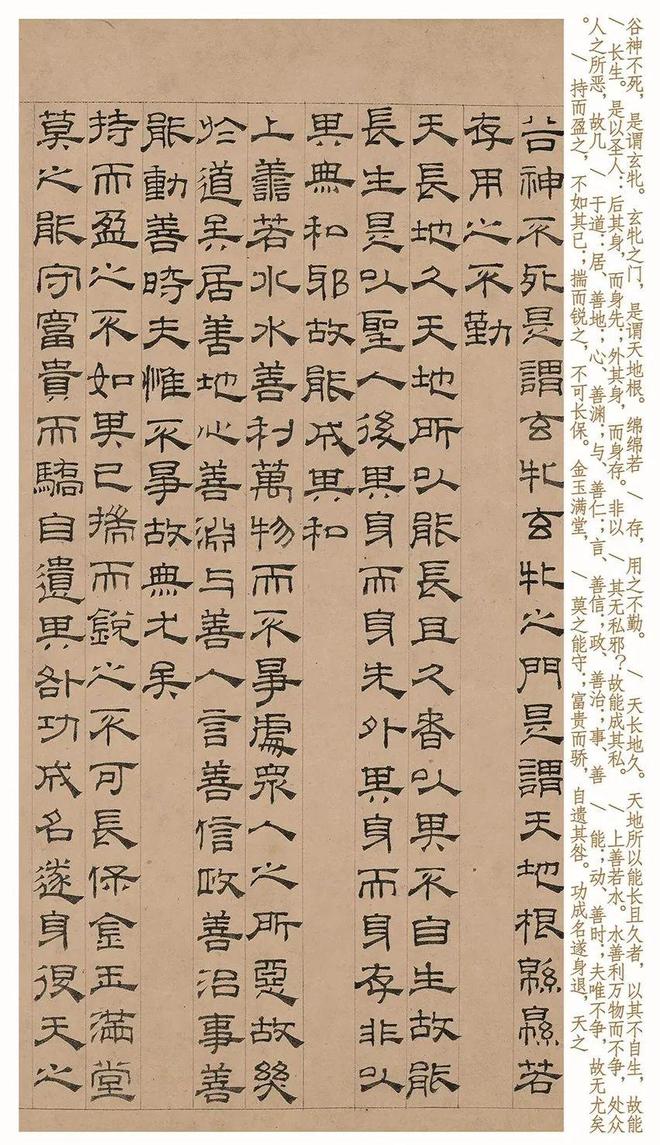 谷神不死,是谓玄牝。玄牝之门,是谓天地根。绵绵若 \ 存,用之不勤。 \ 天长地久。天地所以能长且久者,以其不自生,故能
\ 长生。是以圣人:后其身,而身先;外其身,而身存。非以 \ 其无私邪?故能成其私。 \ 上善若水。水善利万物而不争,处众
人之所恶,故几 \ 于道:居、善地;心、善渊;与、善仁;言、善信;政、善治;事、善 \ 能;动、善时;夫唯不争,故无尤矣
。 \ 持而盈之,不如其已;揣而锐之,不可长保。金玉满堂, \ 莫之能守;富贵而骄,自遗其咎。功成名遂身退,天之
谷神不死是謂玄牝玄牝之門是謂天地根緜緜若
存用之不勤
天長地久天地所以能長且久者以其不自生故能
長生是以聖人後其身而身先外其身而身存非以
其無私邪故能成其私
上善若水水善利萬物而不爭處眾人之所惡故幾
於道矣居善地心善淵与善人言善信政善治事善
能動善時夫惟不爭故無尤矣
持而盈之不如其已揣而銳之不可長保金玉滿堂
莫之能守富貴而驕自遺其咎功成名遂身退天之